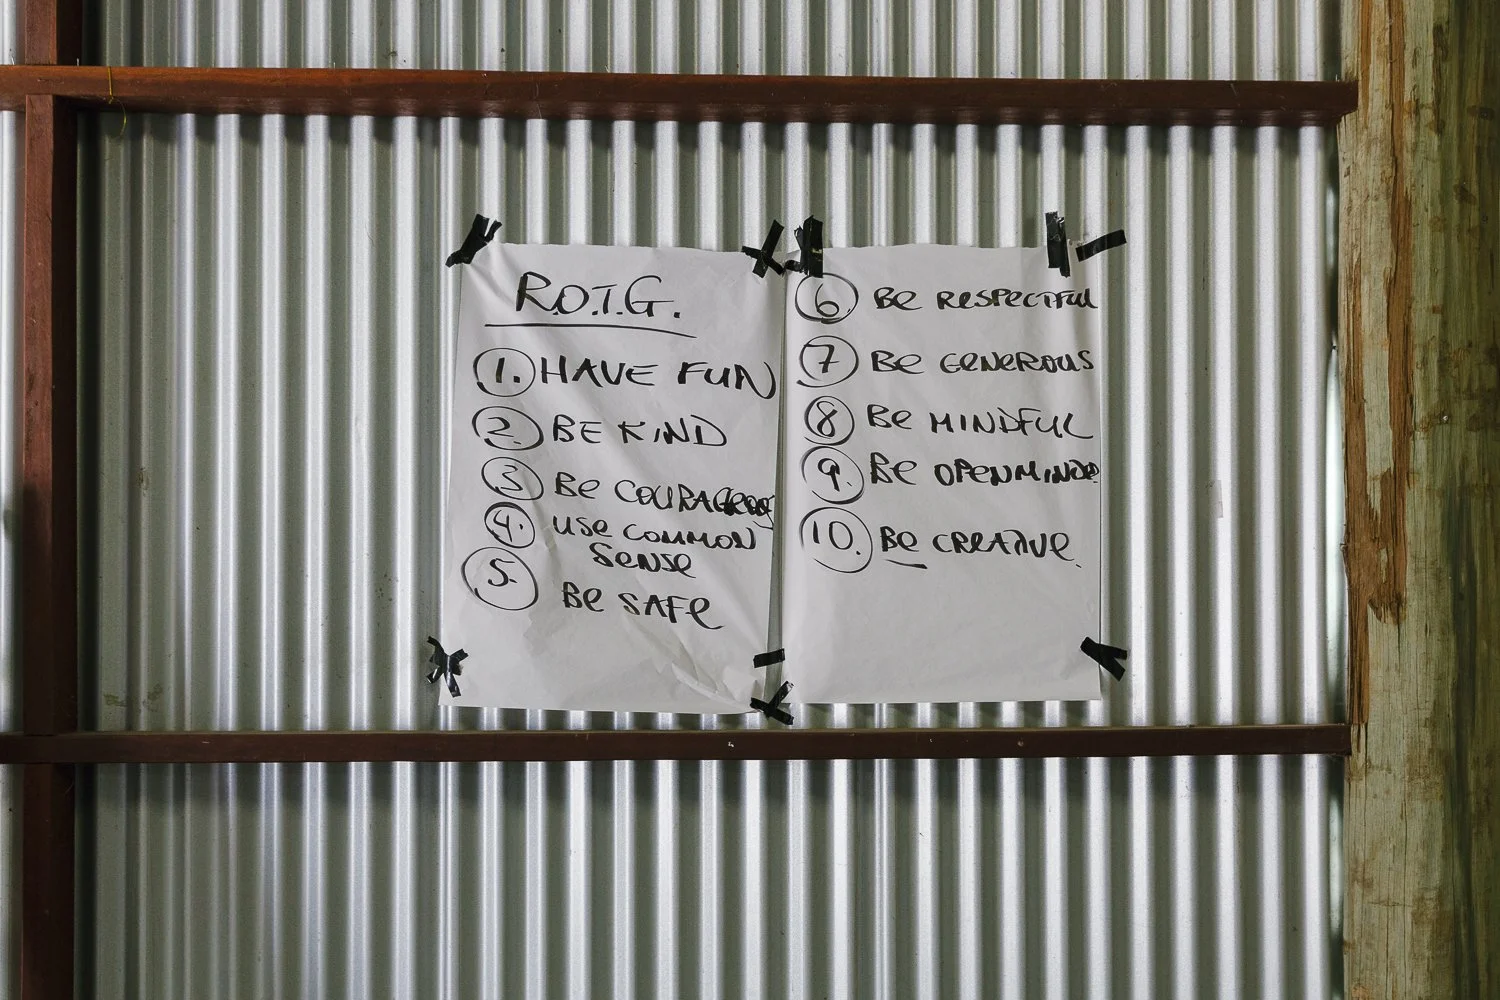 R.O.T.G.
1. HAVE FUN
2. BE KIND
3. Be COURAGEOUS
4. USe COMMON
SeNSe
5. Be SAFe
6 Be ResPeCTFUL
7 Be GeNeROUS
8 Be MINDFUL
9. Be OPeNMINDeD
10. Be CReATIVe.